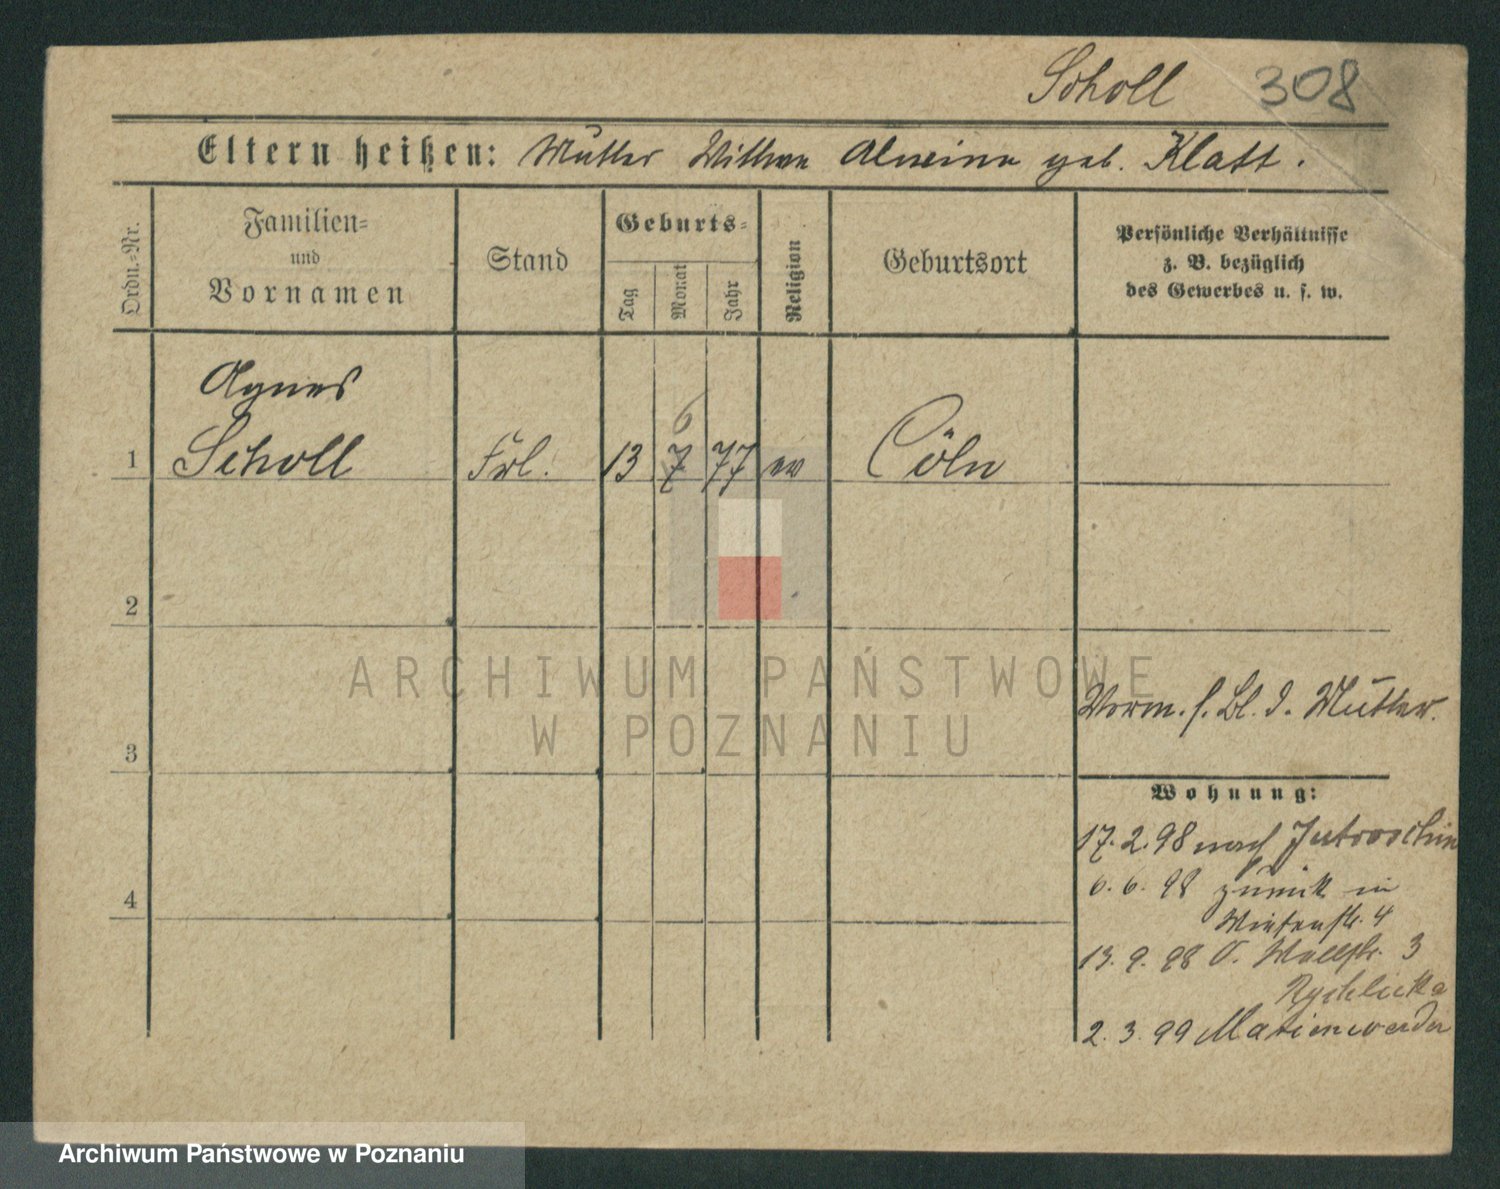 Scholl 308
Eltern heißen: Mutter Wittwe Alwine geb. Klatt.
Ordn.-Nr.
Familien-
und
Vornamen
Stand
Geburts-
Tag
Monat
Jahr
Religion
Geburtsort
Persönliche Verhältnisse
z. B. bezüglich
des Gewerbes u. s. w.
Agnes
6
1 Scholl Frl. 13 7 77 ev Cöln
2
ARCHIWUM PAŃSTWOWE
W POZNANIU
Vorm. s. Bl. d. Mutter.
3
Wohnung:
17. 2. 98 nach Jutroschin
6. 6. 98 zurück in
4
Wiesenstr. 4
13. 9. 98 O. Wallstr. 3
Rychlicka
2. 3. 99 Marienwerder
Archiwum Państwowe w Poznaniu